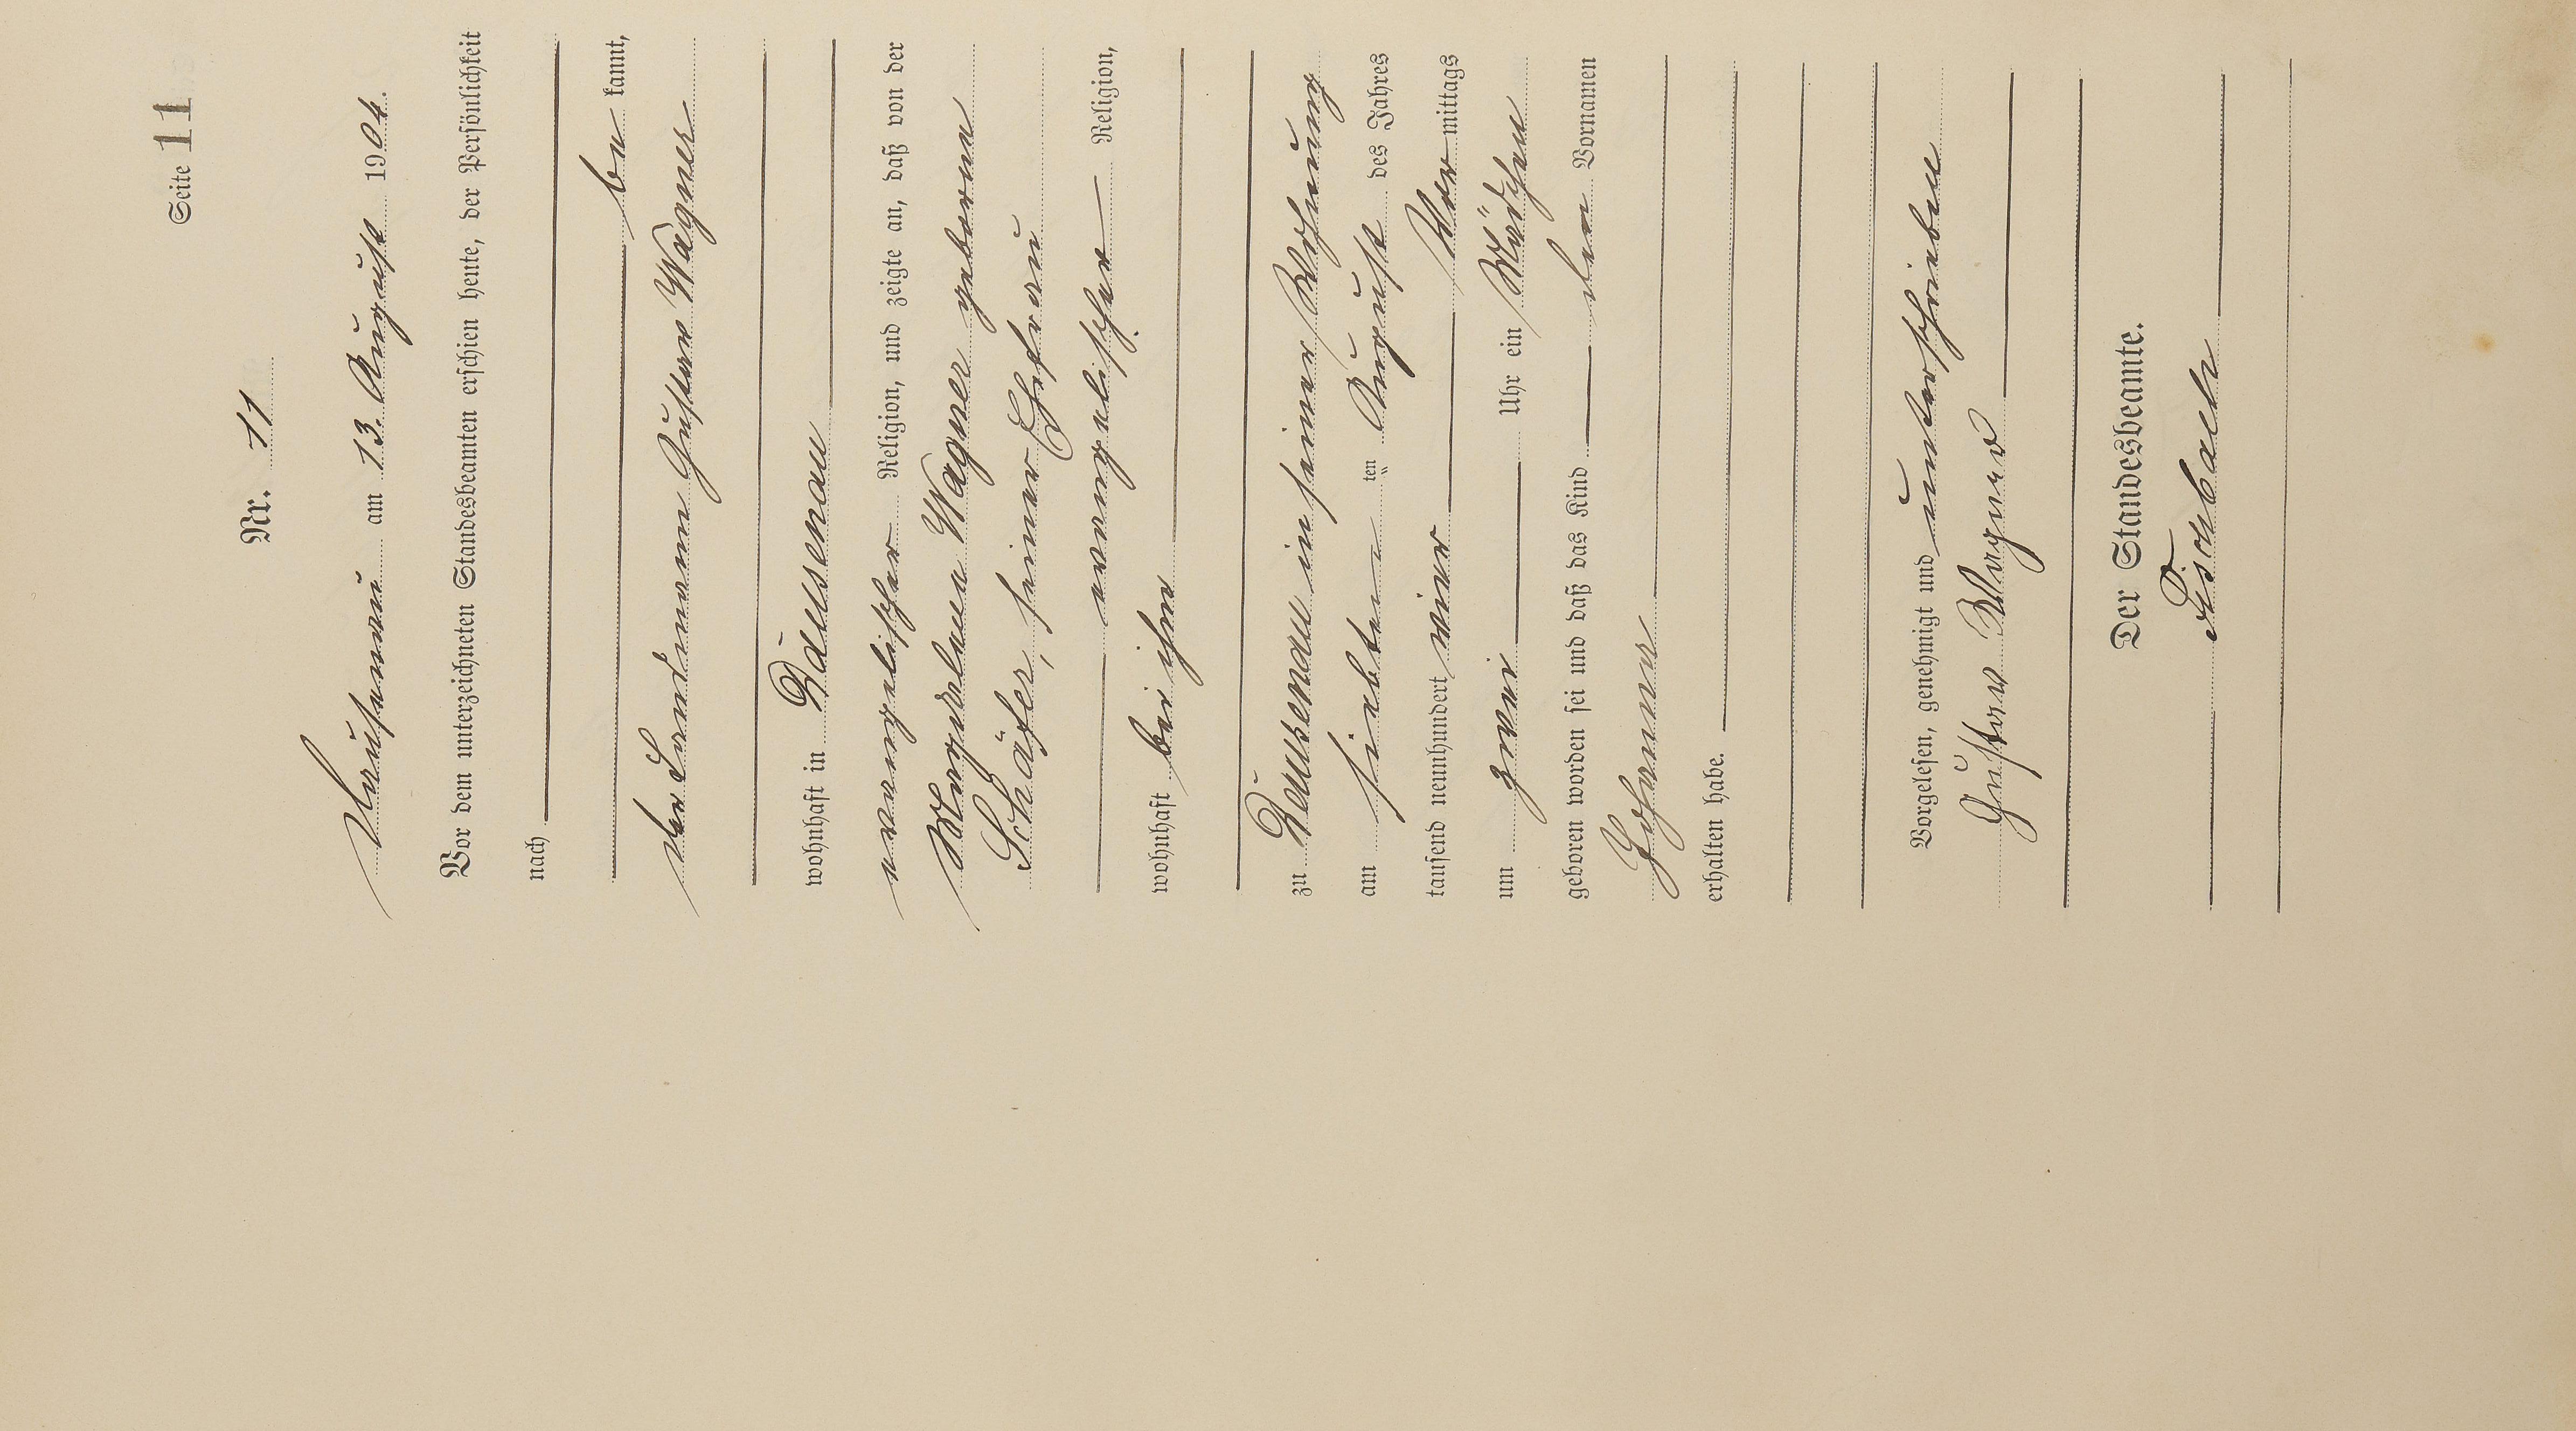 Seite 11
Nr. 11
Dausenau am 13. August 1904.
Vor dem unterzeichneten Standesbeamten erschien heute, der Persönlichkeit
nach
be kannt,
der Landmann Gustav Wagner
wohnhaft in Dausenau
evangelischer Religion, und zeigte an, daß von der
Magdalena Wagner geborene
Schäfer, seiner Ehefrau
evangelischer Religion,
wohnhaft bei ihm
zu Dausenau in seiner Wohnung
am siebten ten August des Jahres
tausend neunhundert vier Vor mittags
um zwei Uhr ein Mädchen
geboren worden sei und daß das Kind den Vornamen
Johanna
erhalten habe.
Vorgelesen, genehmigt und unterschrieben
Gustav Wagner
Der Standesbeamte.